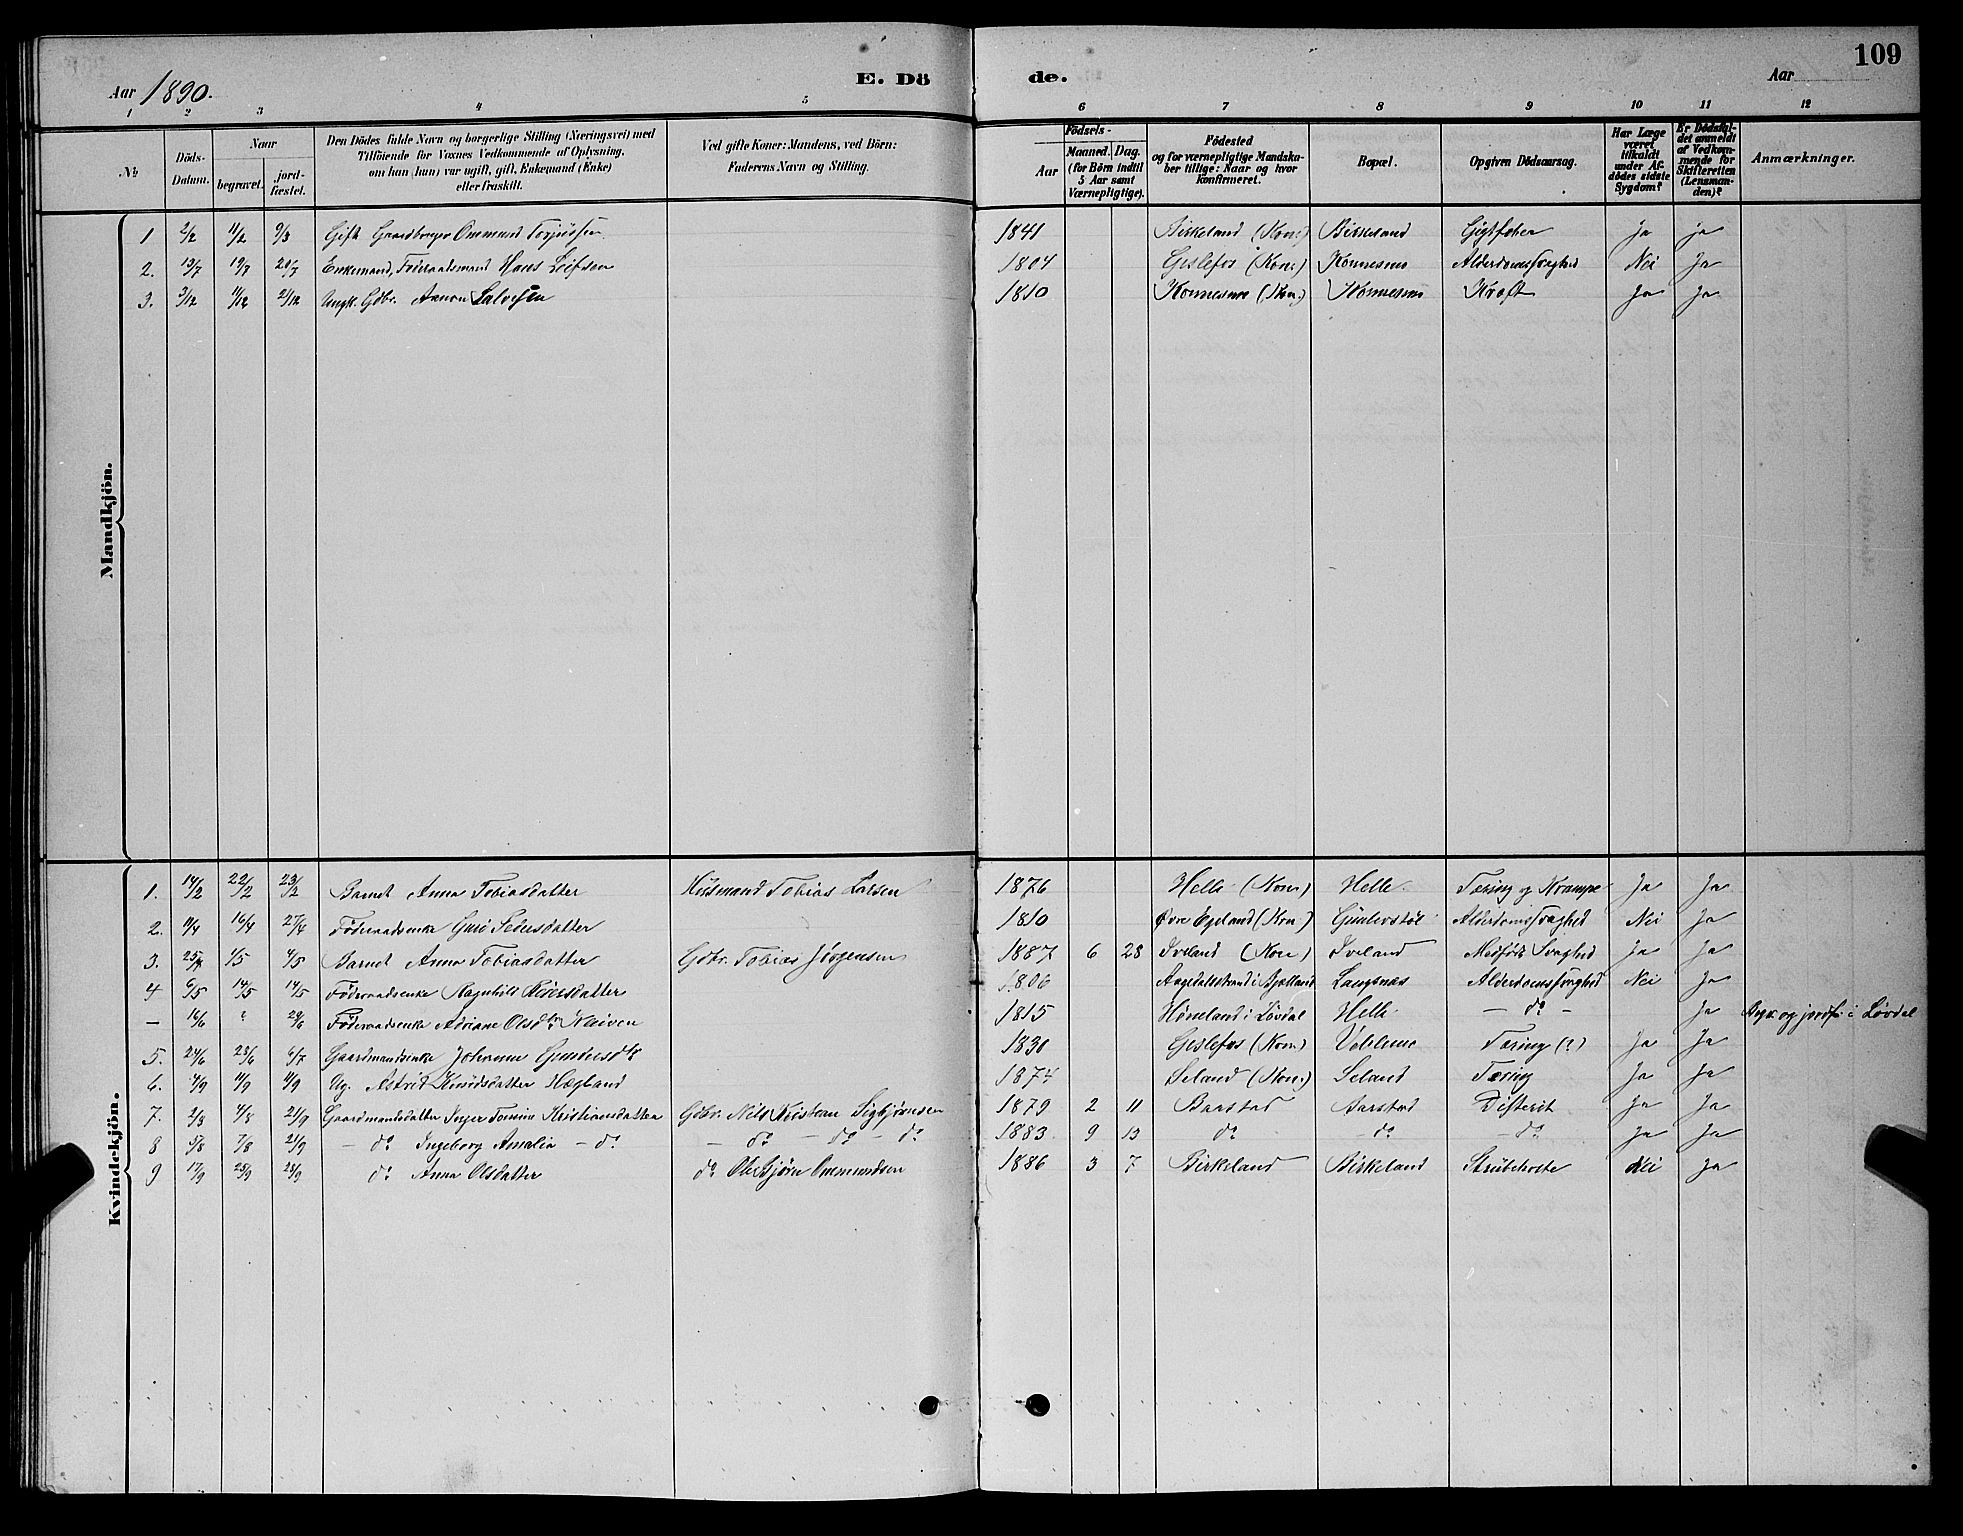 Aar 1890. E. Dö
de. Aar 109
1 2 3 4 5
6 7 8 9 10 11 12
No
Döds-Datum.
Naar
begravet.
jordfæstet.
Den Dödes fulde Navn og borgerlige Stilling (Næringsvei) med
Tilföiende for Voxnes Vedkommende af Oplysning,
om han (hun) var ugift, gift, Enkemand (Enke)
eller fraskilt.
Ved gifte Koner: Mandens, ved Börn:
Faderens Navn og Stilling.
Födsels-
Aar
Maaned. Dag.
(for Börn indtil
5 Aar samt
Værnepligtige).
Födested
og for værnepligtige Mandskaber tillige: Naar og hvor
konfirmeret.
Bopæl.
Opgiven Dödsaarsag.
Har Læge
været
tilkaldt
under Afdödes sidste
Sygdom?
Er Dödsfaldet anmeldt
af Vedkommende for
Skifteretten
(Lensmanden)?
Anmærkninger.
Mandkjön.
1 2/2 11/2 9/3 Gift Gaardbruger Ommund Torjusen 1841 Birkeland (Kon.) Birkeland Gigtfeber ja ja
2. 13/7 19/7 20/7 Enkemand, Föderaadsmand Hans Leifsen 1804 Geslefos (Kon.) Konnesmo Alderdomssvaghed Nei Ja
3. 3/12 11/12 21/12 Ungk. Gdbr. Aanon Salvesen 1810 Konnesmo (Kon.) Konnesmo Kræft Ja Ja
Kvindekjön.
1. 14/2 22/2 23/2 Barnet Anna Tobiasdatter Husmand Tobias Larsen 1876 Helle (Kon.) Helle Tæring og Krampe Ja Ja
2. 11/4 16/4 27/4 Föderaadsenke Guro Pedersdatter 1810 Øvre Egeland (Kon.) Alderdomssvaghed Nei Ja
3. 25/4 1/5 4/5 Barnet Anna Tobiasdatter Gdbr. Tobias Jørgensen 1887 6 28 Iveland (Kon.) Iveland Medfödt Svaghed Ja Ja
4 6/5 14/5 14/5 Föderaadsenke Ragnhild 1806 i Bjelland Langenæs Alderdomssvaghed Nei Ja
— 16/6 ? 29/6 Föderaadsenke Adriane Olsdtr. Kleiven 1815 Høneland i Løvdal Helle — do — Ja og jordf. i Løvdal
5. 24/6 28/6 6/7 Gaardmandsenke Johanne Gundersdtr 1830 Geslefos (Kon.) Tæring (?) Ja Ja
6. 4/9 11/9 11/9 Ug. Astrid Knudsdatter Hægland 1874 Seland (Kon.) Seland Tæring Ja Ja
7. 2/8 4/8 21/9 Gaardmandsdatter Inger Tomine Kristiansdatter Gdbr. Nils Kristian Sigbjørnsen 1879 2 11 Aarstad Difterit Ja Ja
8 5/8 7/8 21/9 — do Ingeborg Amalia — do — do — do — do 1883 9 13 do — do — do Ja Ja
9 17/9 28/9 28/9 do Anna Olsdatter do Ole Bjørn Ommundsen 1886 3 7 Birkeland Birkeland Strubehoste Nei Ja